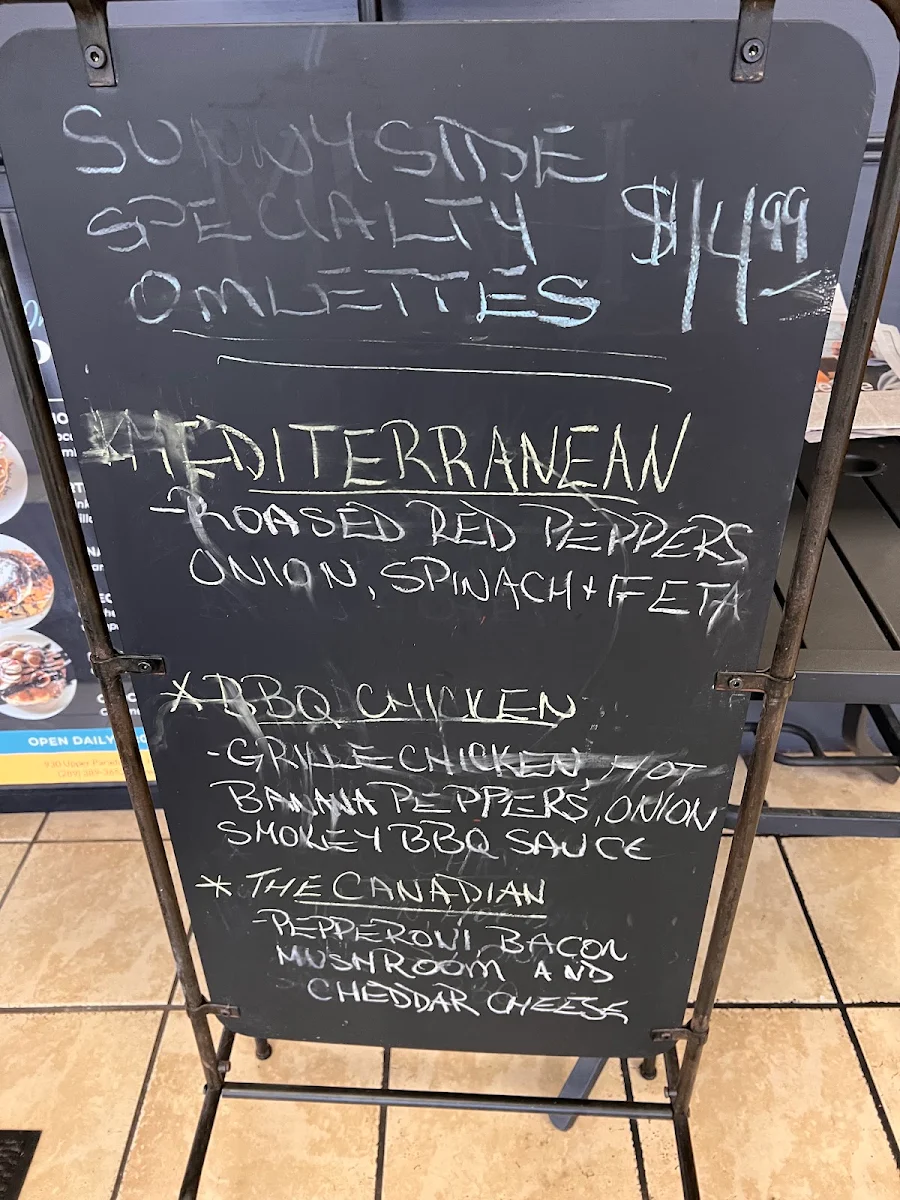 SUNNYSIDE
SPECIALTY
OMLETTES
$14.99
*MEDITERRANEAN
-ROASED RED PEPPERS
ONION, SPINACH + FETA
*BBQ CHICKEN
-GRILLE CHICKEN, HOT
BANANA PEPPERS, ONION
SMOKEY BBQ SAUCE
* THE CANADIAN
-PEPPERONI, BACON
MUSHROOM AND
CHEDDAR CHEESE
OPEN DAILY